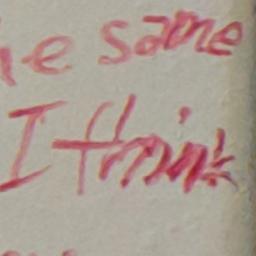 he same
I think